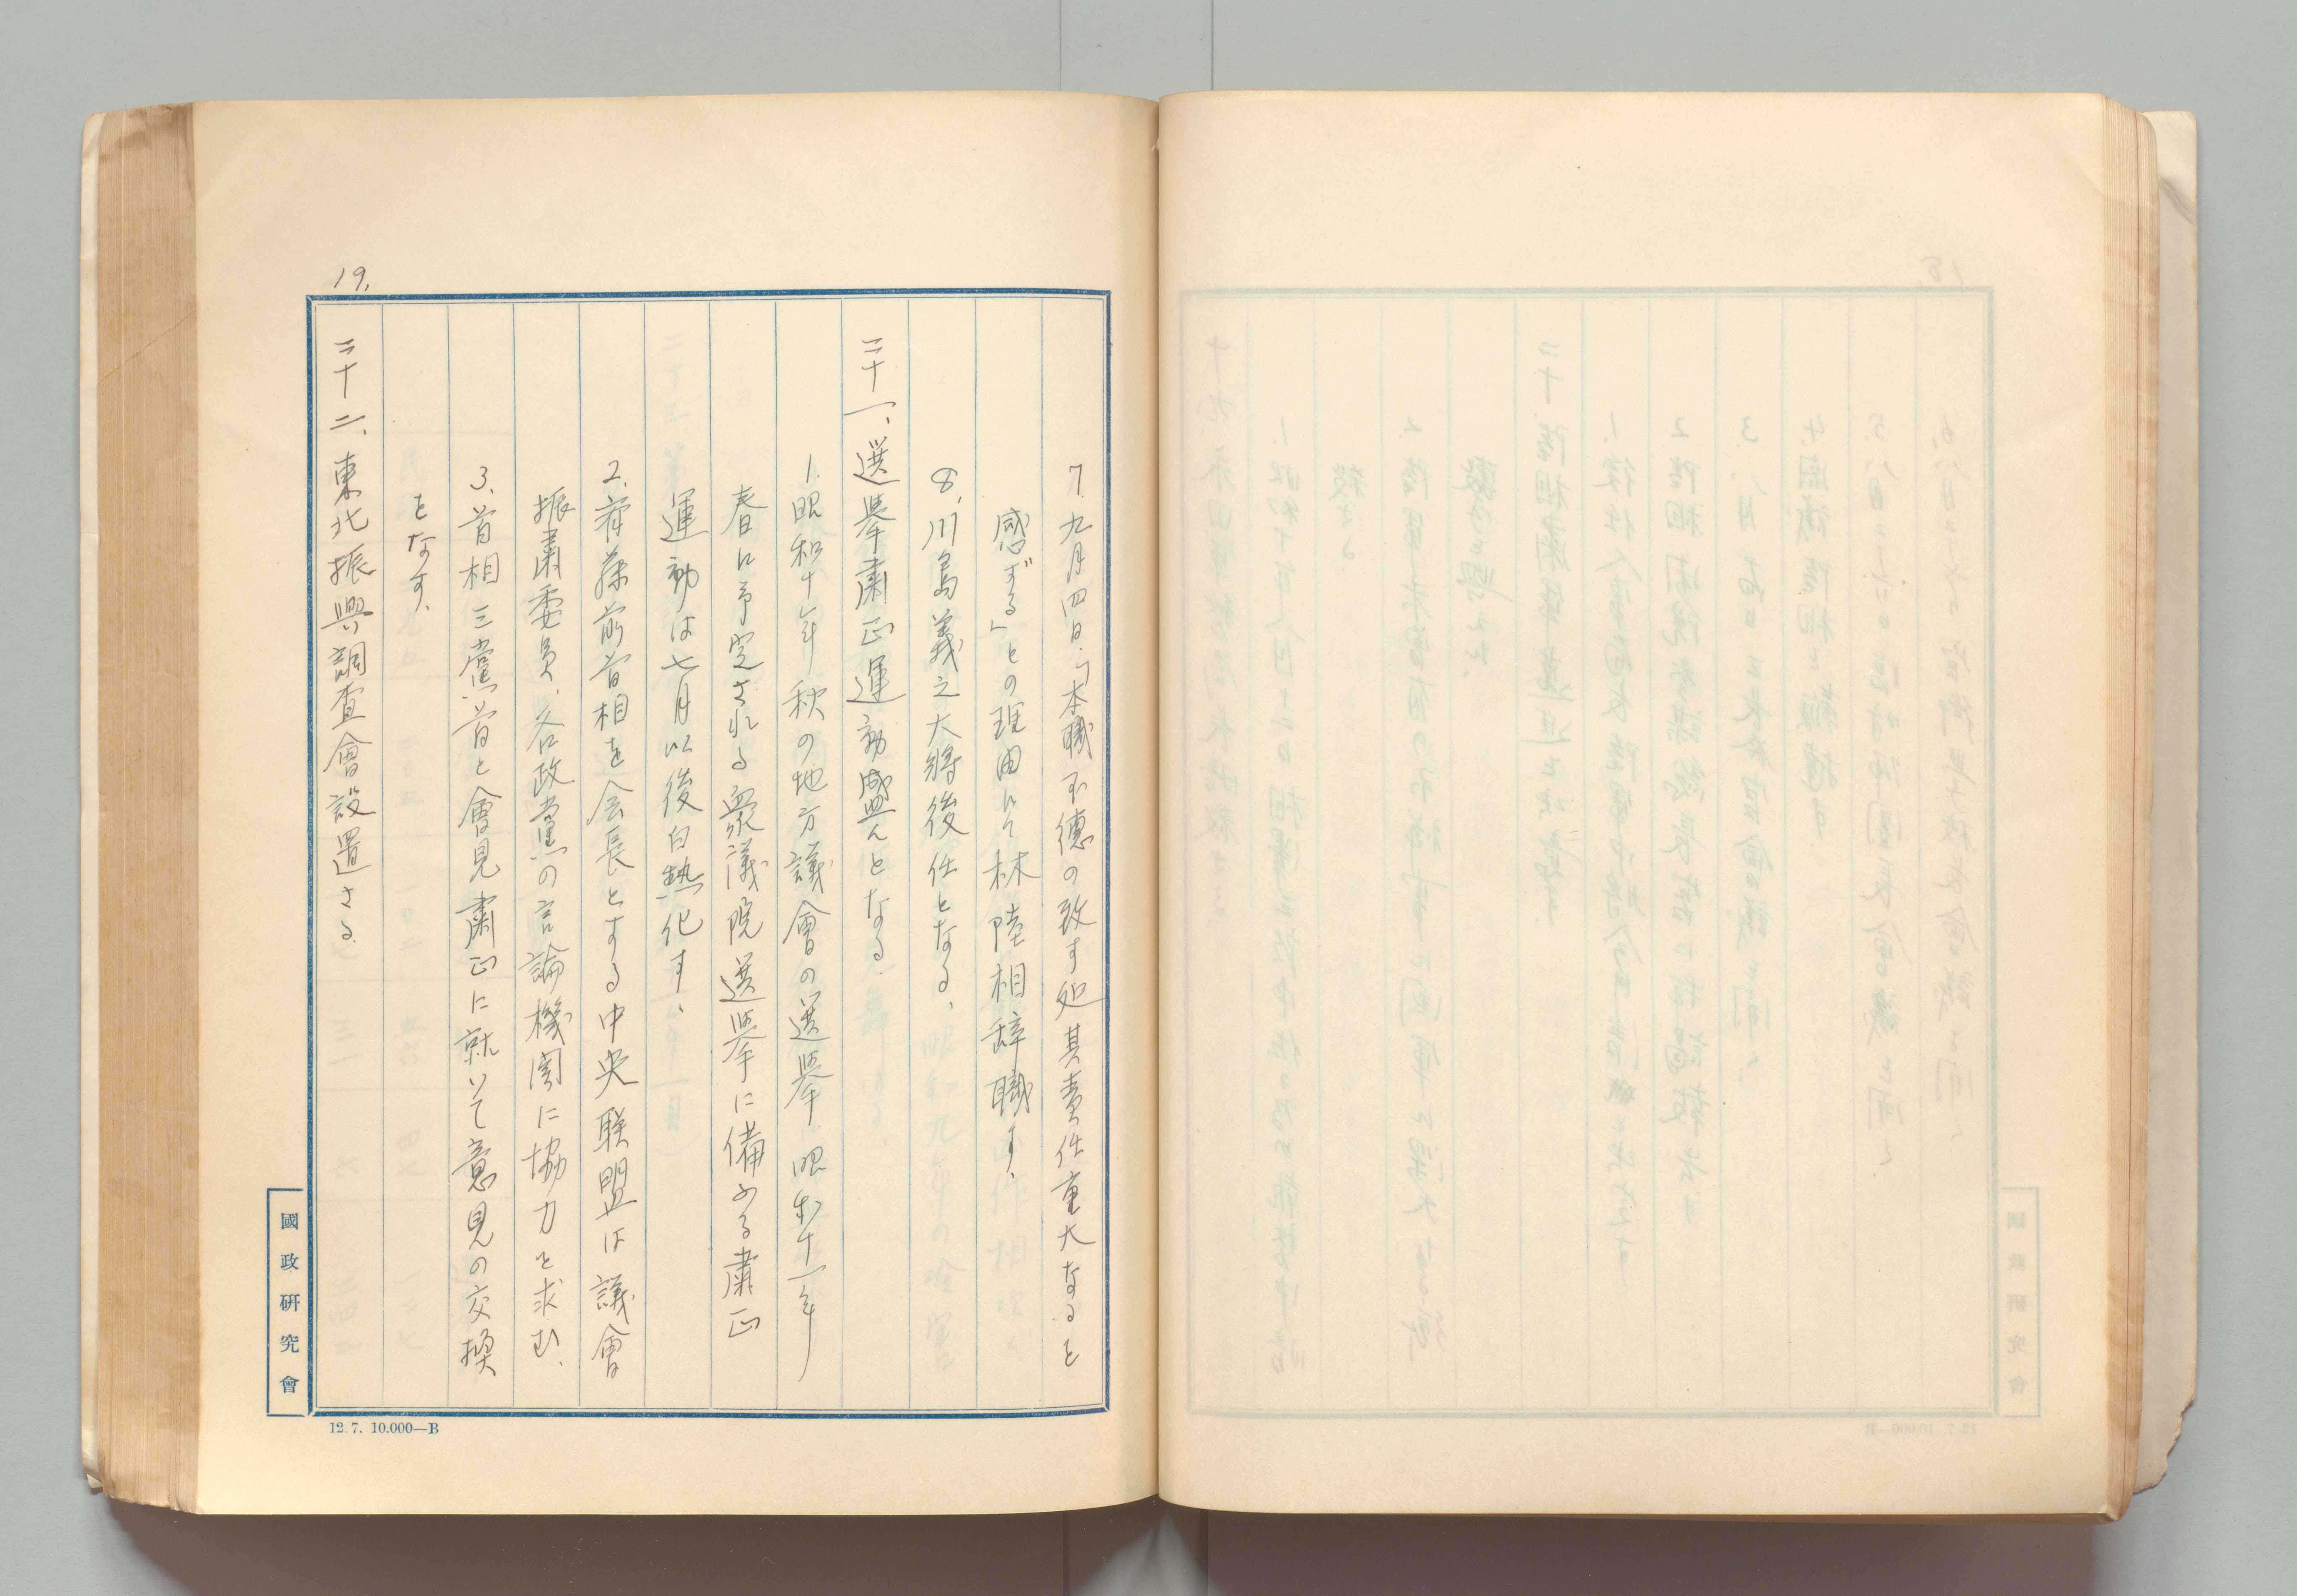 19.
7. 九月四日、「本職不徳の致す処其責任重大なると
感ずる」との理由にて林陸相辞職す、
8. 川島義之大将後任となる、
二十一、選挙肅正運動盛んとなる.
1. 昭和十年秋の地方議會の選挙、昭和十一年
春に予定される衆議院選挙に備ふる肅正
運動は七月以後白熱化す、
2. 斉藤前首相を会長とする中央聯盟は議會
振肅委員、各政黨の言論機関に協力を求む、
3. 首相三黨首と會見肅正に就いて意見の交換
をなす、
二十二、東北振興調査會設置さる.
國政研究會
12.7. 10.000—B